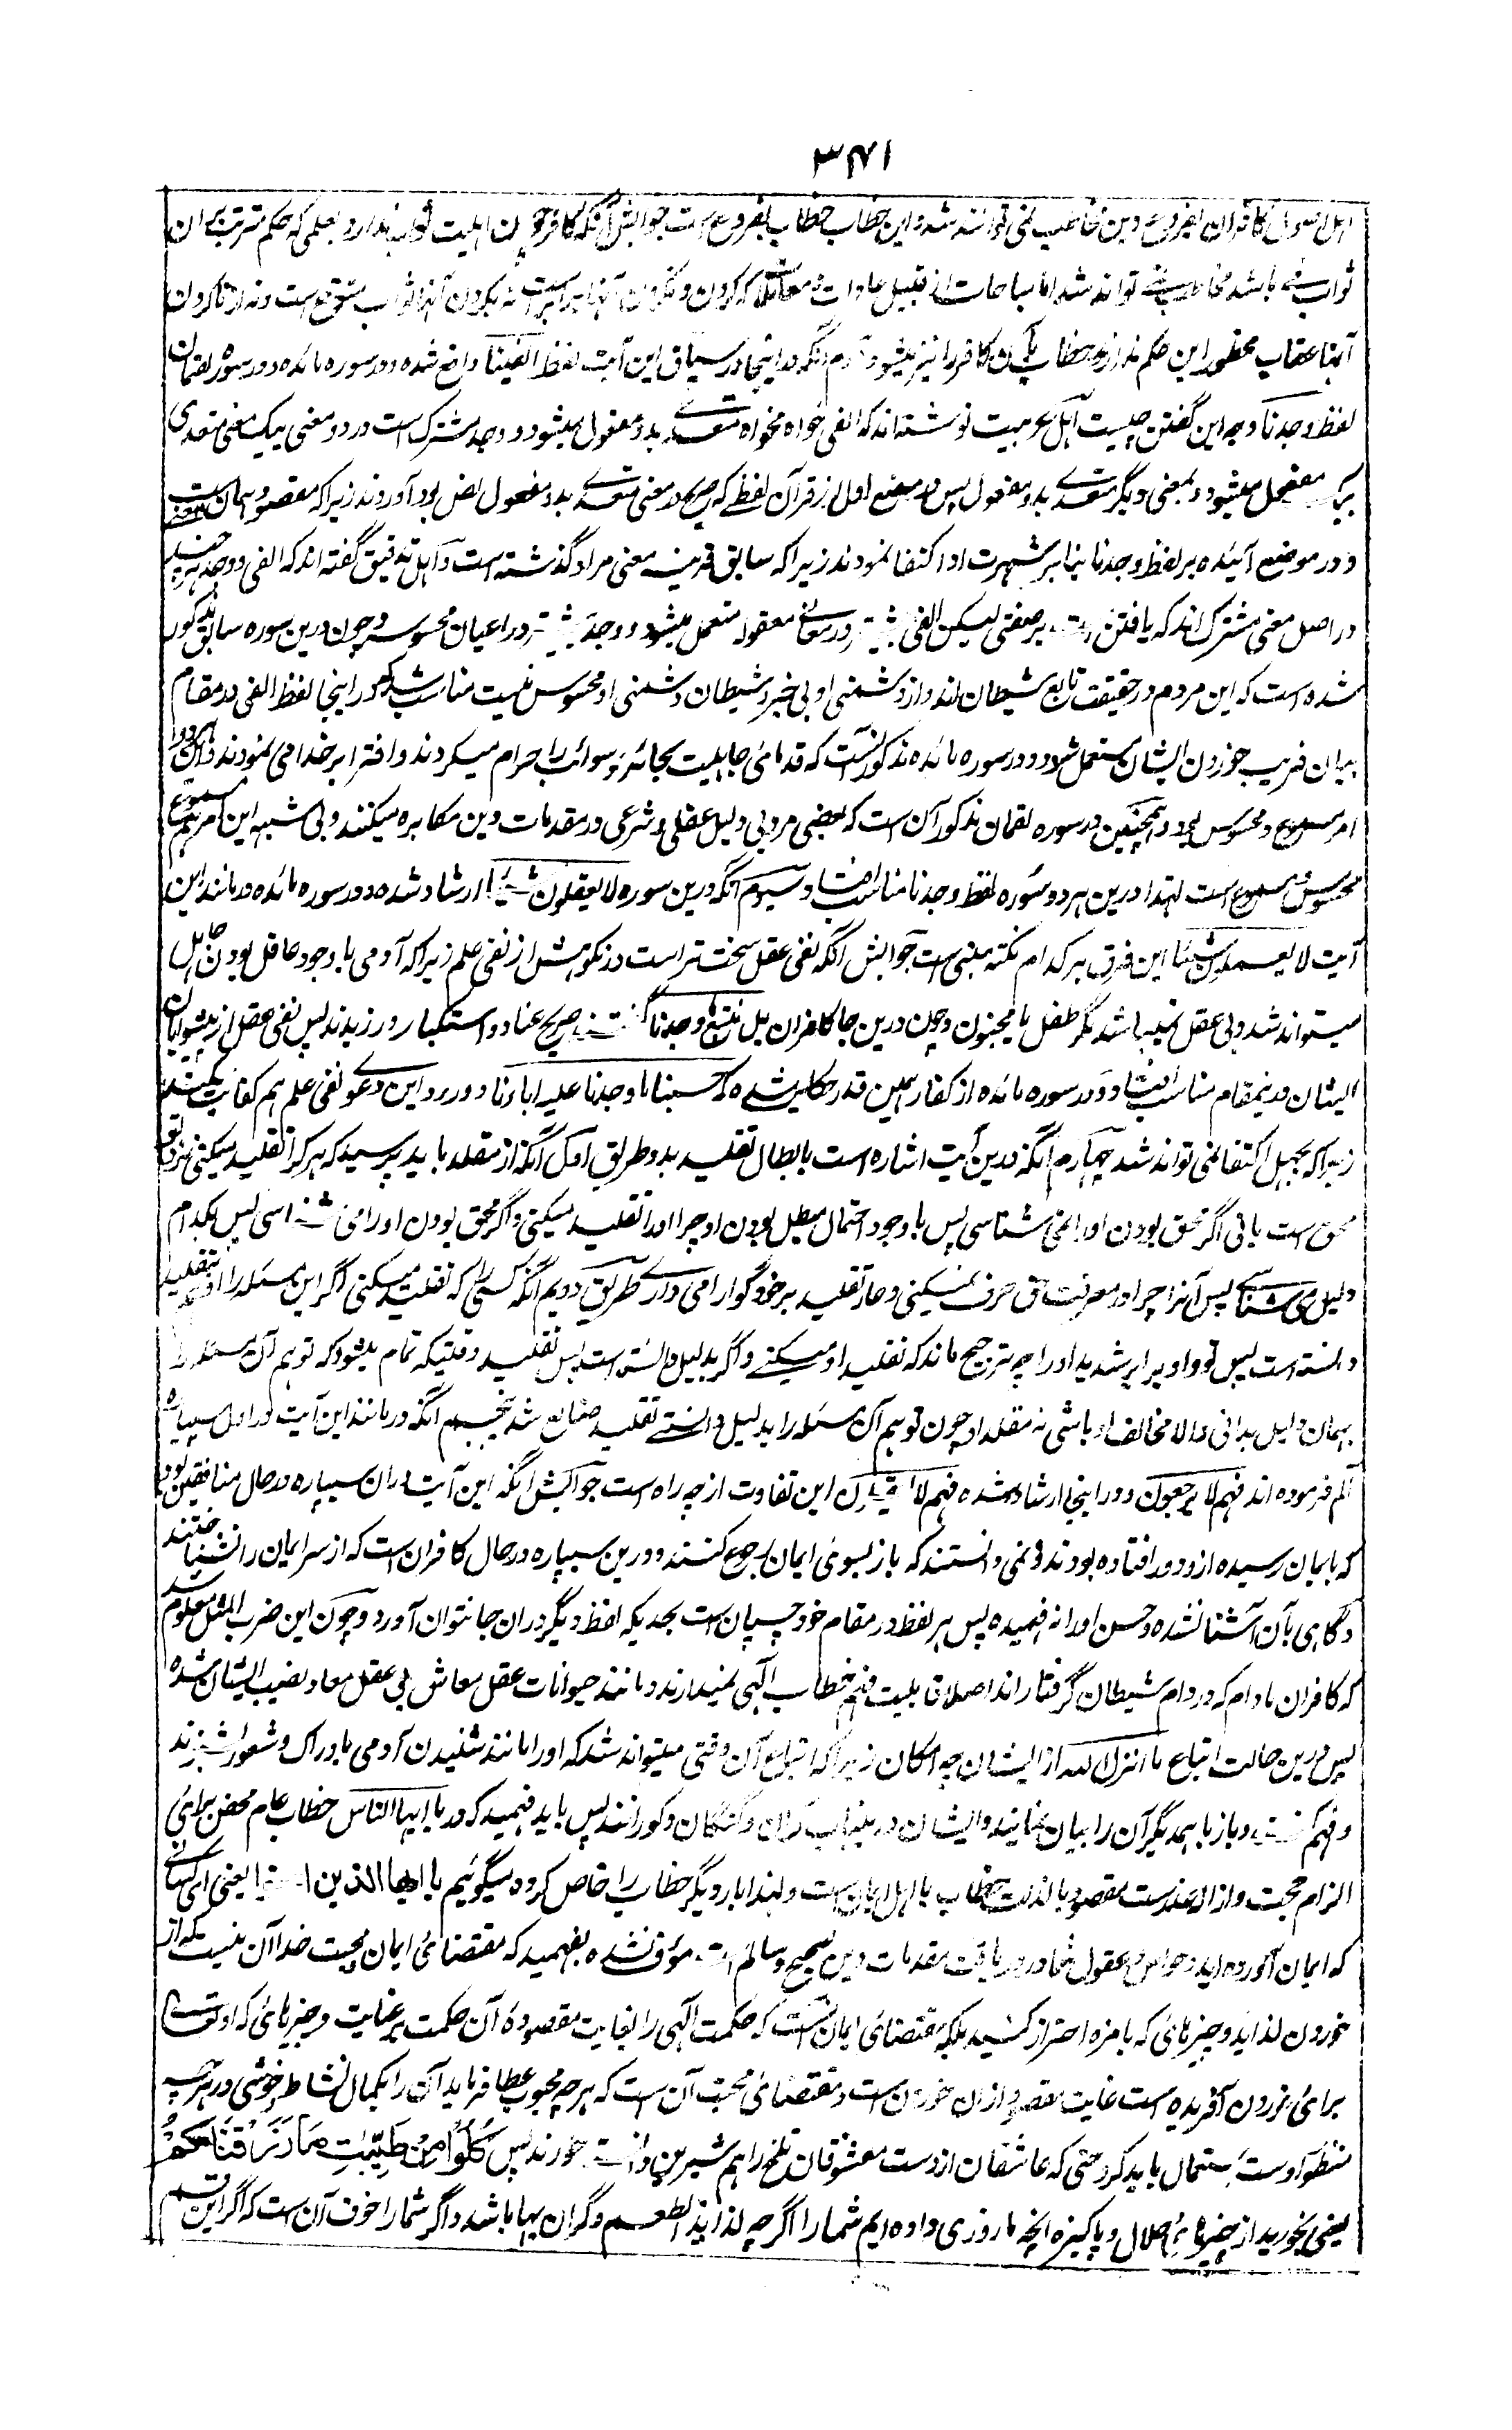 ۳۴۱
اهل اصول کافران بفروع دین مخاطب نمی توانند شد و این خطاب خطاب بفروع است جوابش آنکه کافر چون اهلیت ثواب ندارد بعملی که حکم مترتب بر آن
ثواب باشد مخاطب نمی تواند شد اما مباحات از قبیل عادات و معاملات که کردن و نکردن آنها برابر است نه بکردن آنها ثواب متوقع است و نه از ناکردن
آنها عقاب محظور این حکم ندارند خطاب بآن کافر را نیز میشود دوم آنکه در اینجا در سیاق این آیت لفظ الفینا واقع شده و در سوره مائده و در سوره لقمان
لفظ وجدنا وجه این گفتن چیست اهل عربیت نوشته اند که الفی خواه مخواه متعدی بدو مفعول میشود و وجد مشترک است در دو معنی بیک معنی متعدی
بیک مفعول میشود و بمعنی دیگر متعدی بدو مفعول پس در موضع اول از قرآن لفظی که صریح در معنی متعدی بدو مفعول نص بود آوردند زیرا که مقصود همان است
و در موضع آینده بر لفظ وجدنا بنا بر شهرت او اکتفا نمودند زیرا که سابق قرینه معنی مراد گذشته است و اهل تدقیق گفته اند که الفی و وجد هر
در اصل معنی مشترک اند که یافتن است بر صفتی لیکن الفی بیشتر در معانی معقوله مستعمل میشود و وجد بیشتر در اعیان محسوسه و چون درین سوره سابق مذکور
شده است که این مردم در حقیقت تابع شیطان اند و از دشمنی او بی خبر و شیطان و دشمنی او محسوس نیست مناسب شد که در اینجا لفظ الفی در مقام
بیان فریب خوردن ایشان مستعمل شود و در سوره مائده مذکور است که قدمای جاهلیت بحائر و سوائب را حرام میکردند و افترا بر خدا می نمودند و این هر دو
امر مسموع و محسوس بود و همچنین در سوره لقمان مذکور آن است که بعضی مردم بی دلیل عقلی و شرعی در مقدمات دین مکابره میکنند و بی شبهه این امر هم
محسوس و مسموع است لهذا درین هر دو سوره لفظ وجدنا مناسب افتاد سیوم آنکه درین سوره لا یعقلون شیئا ارشاد شده و در سوره مائده در مانند این
آیت لا یعلمون شیئا این فرق بر کدام نکته مبنی است جوابش آنکه نفی عقل سخت تر است در نکوهش از نفی علم زیرا که آدمی با وجود عاقل بودن جاهل
میتواند شد و بی عقل نمیباشد مگر طفل یا مجنون و چون درین جا کافران بل نتبع ما وجدنا گفتند صریح عناد و استکبار ورزیدند پس نفی عقل از پیشوایان
ایشان در ینمقام مناسب افتاد و در سوره مائده از کفار همین قدر حکایت شده که حسبنا ما وجدنا علیه اباءنا و در رد این دعوی نفی علم هم کفایت میکند
زیرا که بجهل اکتفا نمی تواند شد چهارم آنکه درین آیت اشاره است بابطال تقلید بدو طریق اول آنکه از مقلد باید پرسید که هر کرا تقلید میکنی نزد تو
محق است یا نی اگر محق بودن او را نمی شناسی پس با وجود احتمال مبطل بودن او چرا او را تقلید میکنی و اگر محق بودن او را می شناسی پس بکدام
دلیل می شناسی پس آنرا چرا در معرفت حق صرف نمیکنی و عار تقلید بر خود گوارا می داری طریق دویم آنکه کسی را که تقلید میکنی اگر این مسئله را او بتقلید
دانسته است پس تو و او برابر شدید او را چه ترجیح ماند که تقلید او میکنی و اگر بدلیل دانسته است پس تقلید وقتیکه تمام میشود که تو هم آن مسئله را
بهمان دلیل بدانی و الا مخالف او باشی نه مقلد او چون تو هم آن مسئله را بدلیل دانستی تقلید ضایع شد پنجم آنکه در مانند این آیت در اول سیپاره
الم فرموده اند فهم لا یرجعون و در اینجا ارشاد شده فهم لا یعقلون این تفاوت از چه راه است جوابش آنکه این آیت در ان سیپاره در حال منافقین بود
که بایمان رسیده از و دور افتاده بودند و نمی دانستند که باز بسوی ایمان رجوع کنند و درین سیپاره در حال کافران است که از سر ایمان را نشناختند
و گاهی بآن آشنا نشده و حسن او را نه فهمیده پس هر لفظ در مقام خود چسپان است بحدیکه لفظ دیگر در ان جا نتوان آورد و چون این ضرب المثل معلوم شد
که کافران مادام که در دام شیطان گرفتار اند اصلا قابلیت فهم خطاب الهی نمیدارند و مانند حیوانات عقل معاش بی عقل معاد نصیب ایشان شده
پس درین حالت اتباع ما انزل الله از ایشان چه امکان زیرا که اتباع آن وقتی میتواند شد که او را مانند شنیدن آدمی با دراک و شعور بشنوند
و فهم کنند و باز با همدیگر آن را بیان نمایند و ایشان در ینباب کران و گنگان و کورانند پس باید فهمید که در یا ایها الناس خطاب عام محض برای
الزام حجت و ازاله عذر است مقصود بالذات خطاب با اهل ایمان است و لهذا بار دیگر خطاب را خاص کرده میگوئیم یا ایها الذین امنوا یعنی ای کسانی
که ایمان آورده اید و حواس و عقول شما در دریافت مقدمات دین صحیح و سالم است مؤف نشده بفهمید که مقتضای ایمان و محبت خدا آن نیست که از
خوردن لذاید و چیزهای با مزه احتراز کنید بلکه مقتضای ایمان آنست که حکمت الهی را بغایت مقصوده آن حکمت و چیزهای که او تعالی
برای خوردن آفریده است غایت مقصود از ان خوردن است و مقتضای محبت آن است که هر چه محبوب عطا فرماید آن را بکمال نشاط و خوشی در هر چه
منظور اوست استعمال باید کرد حتی که عاشقان از دست معشوقان تلخ را هم شیرین دانسته خورند پس کُلُوا مِنْ طَیِّبٰتِ مَا رَزَقْنٰکُمْ
یعنی بخورید از چیزهای حلال و پاکیزه آنچه ما روزی داده ایم شما را اگرچه لذایذ الطعم و گران بها باشد و اگر شما را خوف آن است که اگر این قسم